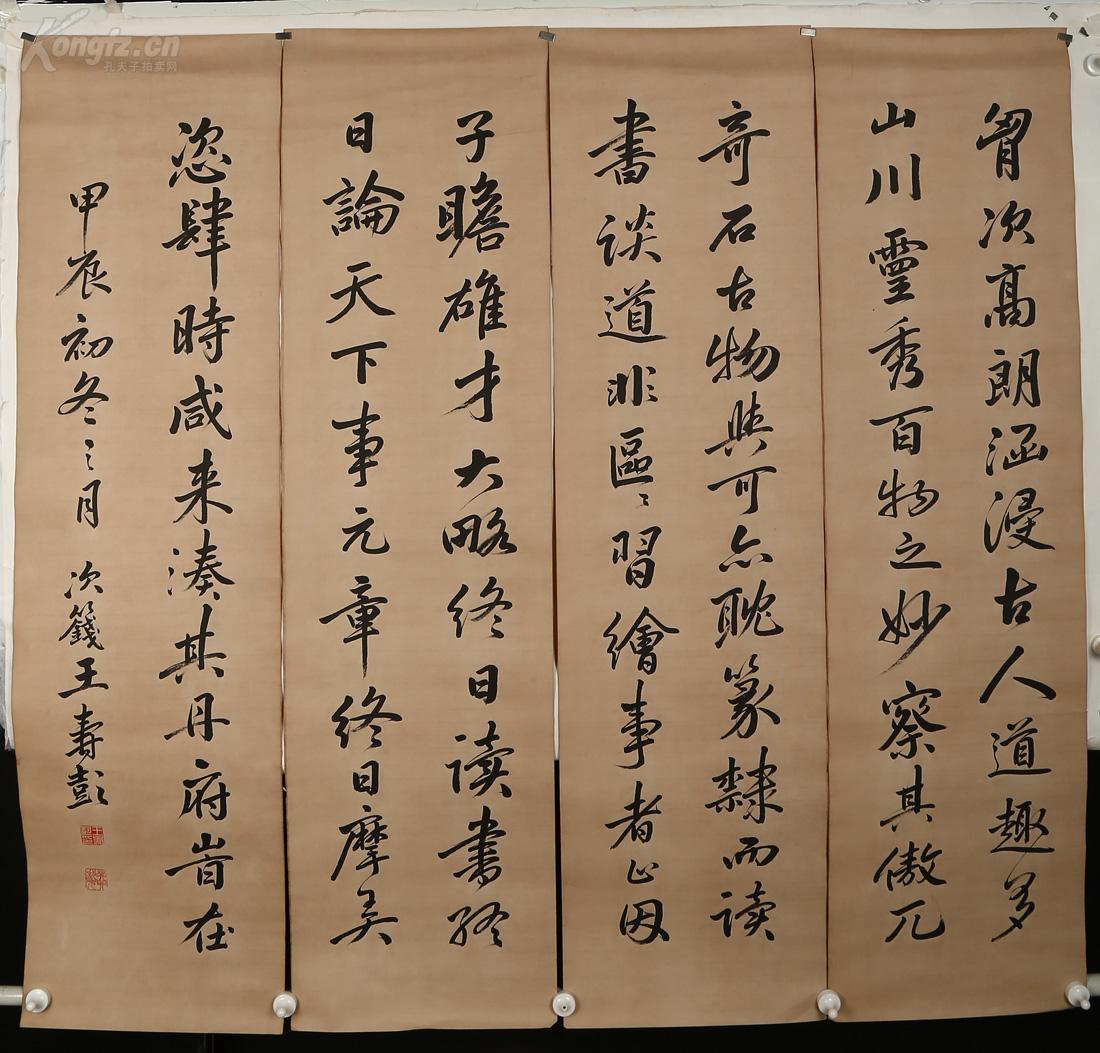 胷次高朗涵浸古人道趣多
山川靈秀百物之妙察其傲兀
奇石古物與可亦耽篆隸而读
書谈道非區〻習繪事者比因
子瞻雄才大略终日读書终
日論天下事元章终日摩弄
恣肆時咸来湊其丹府岀在
甲辰初冬之月 次篯王寿彭
Kongfz.cn
孔夫子拍卖网